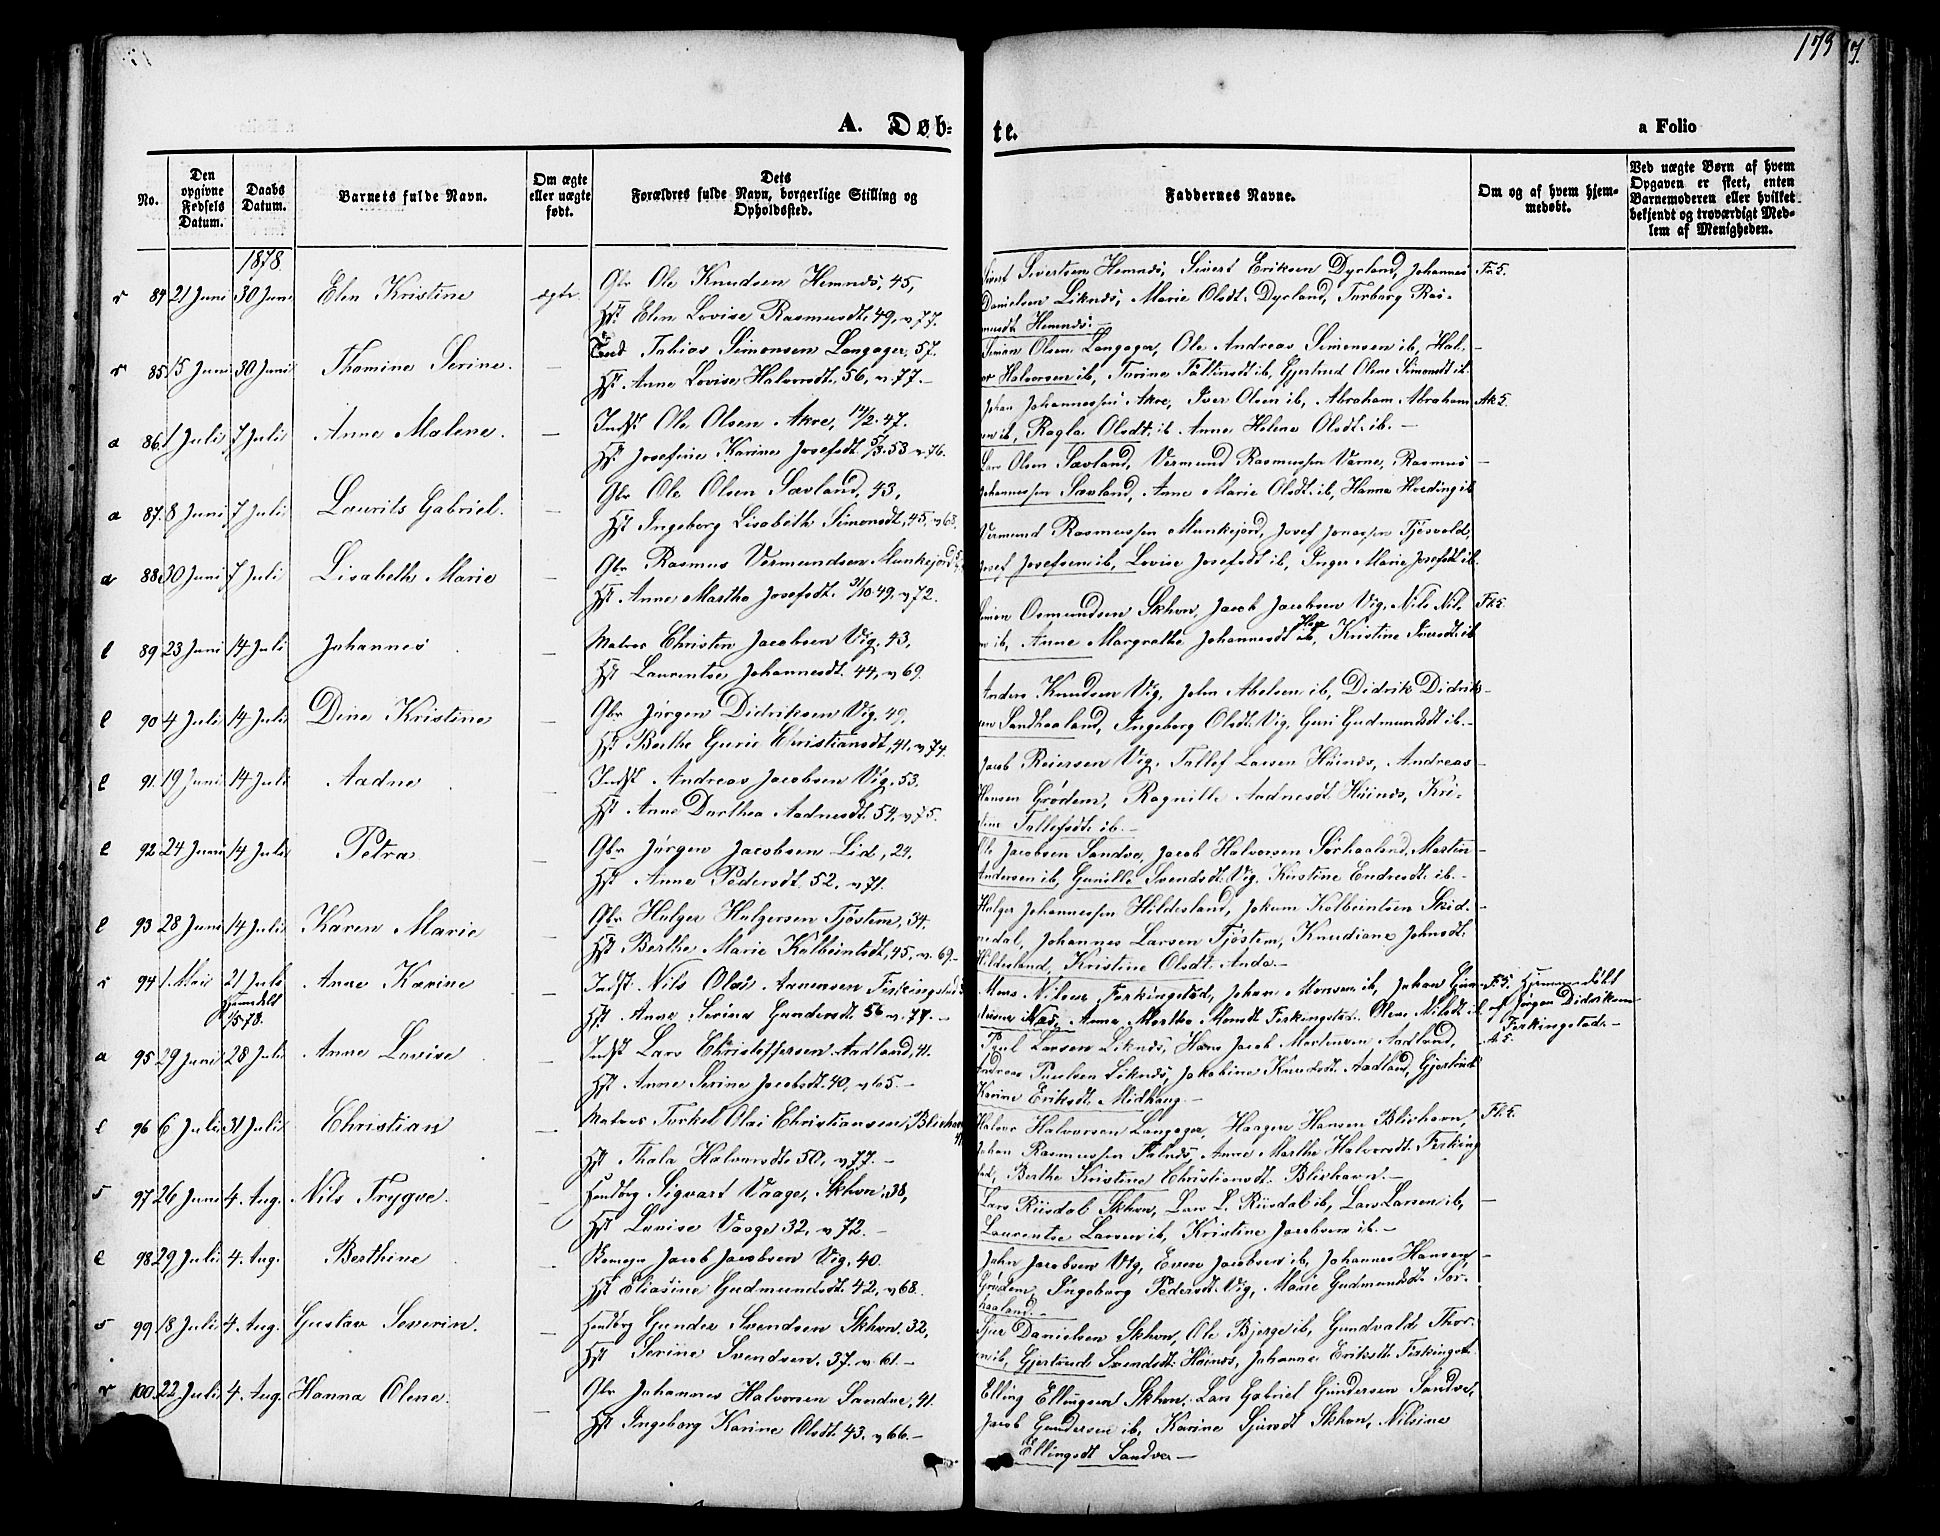 173
A. Døb-
te.
a Folio
No.
Den opgivne Fødsels Datum.
Daabs Datum.
Barnets fulde Navn.
Om ægte eller uægte født.
Dets Forældres fulde Navn, borgerlige Stilling og Opholdssted.
Faddernes Navne.
Om og af hvem hjem-
medøbt.
Ved uægte Børn af hvem
Opgaven er skeet, enten
Barnemoderen eller hvilket
bekjendt og troværdigt Med-
lem af Menigheden.
1878.
84 21 Juni 30 Juni Elen Kristine ægte. Gbr Ole Knudsen Hemnæs, 45,
Hst. Elen Lovise Rasmusdt. 49, v 77.
Sivertsen Hemnæs, Sivert Eriksen Dyrland, Johannes
Danielsen Liknæs, Marie Olsdt. Dyrland, Torborg Ras-
musdt Hemnæs.
85 15 Juni 30 Juni Thomine Serine. — Tobias Simonsen Langager, 57.
Hst. Anne Lovise Halvorsdt, 56, v 77.—
Simon Olsen Langager, Ole Andreas Simonsen ib, Hal-
vor Halvorsen ib, Gjertrud Olene Simonsdt ib.
a 86. 1 Juli 7 Juli Anne Malene. — Indst Ole Olsen Akre, 14/2. 47.
Hst. Josefine Karine Josefsdt. 53 v 76.
Johan Johannessen Akre, Iver Olsen ib, Abraham Abraham- Ak 5.
sen ib, Ragla Olsdt. ib. Anne Helene Olsdt. ib.—
a 87. 8 Juni 7 Juli Laurits Gabriel. — Gbr Ole Olsen Sævland, 43,
Hst Ingeborg Lisabeth Simonsdt, 45, v 68.
Lars Olsen Sævland, Vermund Rasmussen Varne, Rasmus
Johannessen Sævland, Anne Marie Olsdt. ib, Hanna Hveding ib
a 88. 30 Juni 7 Juli Lisabeth Marie — Gbr Rasmus Vermundsen Munkejord
Hst Anne Martha Josefsdt. 31/10 49, v 72.
Vermund Rasmussen Munkejord, Josef Jonassen Tjøsvold,
Josef Josefsen ib, Lovise Josefsdt ib, Inger Marie Josefsdt ib.
l 89 23 Juni 14 Juli Johannes — Matros Christen Jacobsen Vig, 43,
Hst Laurentse Johannesdt. 44, v 69.
Simon Osmundsen Skhvn, Jacob Jacobsen Vig, Nils Nils-
sen ib, Anne Margrethe Johannesdt ib, Kristine Iversdt. ib
l 90 4 Juli 14 Juli Dine Kristine — Gbr Jørgen Didriksen Vig, 49,
Hst Berthe Gurie Christiansdt, 41. v 74.
Anders Knudsen Vig, John Abelsen ib, Didrik Didrik-
sen Sandhaaland, Ingeborg Olsdt. Vig, Guri Gudmundsdt ib.—
l 91. 19 Juni 14 Juli Aadne — Indst Andreas Jacobsen Vig, 53.
Hst Anne Dorthea Aadnesdt. 54, v 75.
Jacob Reiersen Vig, Tollef Larsen Hüinæs, Andreas
Hansen Grødem, Ragnille Aadnesdt. Hüinæs, Kri-
stine Tollefsdt ib.—
l 92 24 Juni 14 Juli Petra — Gbr Jørgen Jacobsen Lid, 24.
Hst Anne Pedersdt. 52, v 71.
Ole Jacobsen Sandve, Jacob Halvorsen Sørhaaland, Martin
Andersen ib, Gunille Svendsdt. Vig. Kirstine Endresdt. ib.—
l 93 28 Juni 14 Juli Karen Marie — Gbr Holger Holgersen Tjøstem, 34.
Hst Berthe Marie Kolbeinsdt, 45, v. 69.—
Holger Johannessen Hildesland, Jokum Kolbeintsen Skid-
nedal, Johannes Larsen Tjøstem, Knudiane Johnsdt.
Hildesland, Kristine Olsdt. Anda.—
94 1. Mai 21 Juli Anne Karine — Indst. Nils Olai Aanensen Ferkingstad
Hjemdøbt 1/5 78.
Hst. Anne Serine Gundersdt 56 v. 77.—
Mons Nilsen Ferkingstad, Johan Monsen ib, Johan Gun-
dersen Næs, Anne Marthe Monsdt Ferkingstad. Olene Nilsdt ib.
F. 5. Hjemmedøbt
af Jørgen Didriksen
Ferkingstad.—
a 95 29 Juni 28 Juli Anne Lovise — Indst Lars Christoffersen Aadland, 41.
Hst. Anne Serine Jacobsdt. 40, v 65.—
Poul Larsen Liknæs, Hans Jacob Mortensen Aadland,
Andreas Poulsen Liknæs, Jakobine Knudsdt. Aadland, Gjertrud
Karine Eriksdt. Midhaug.—
96 6 Juli 31 Juli Christian — Matros Torkel Olai Christiansen, Blixhavn
Hst Thala Halvorsdt. 50, v 77.—
Halvor Halvorsen Langager, Haagen Hansen Blixhavn,
Johan Rasmussen Falnæs, Anne Marthe Halvorsdt. Ferking-
stad, Berthe Kristine Christiansdt. Blixhavn.—
s 97 26 Juni 4. Aug. Nils Trygve. — Handbg Sigvart Vaage, Skhvn, 38,
Hst Lovise Vaage 32, v 72.—
Lars Riisdal Skhvn, Lars L. Riisdal ib, Lars Larsen ib,
Laurentse Larsen ib, Kristine Jacobsen ib.—
l 98 29 Juli 4. Aug. Berthine — Jacob Jacobsen Vig, 40.
Hst Eliasine Gudmundsdt. 42, v 68.
John Jacobsen Vig, Even Jacobsen ib, Johannes Hansen,
Grødem, Ingeborg Pedersdt. Vig, Marie Gudmundsdt. Sør-
haaland.—
s 99 18 Juli 4. Aug. Gustav Severin. — Handbg Gunder Svendsen Skhvn, 32,
Hst Serine Svendsen. 37. v. 61.—
Sjur Danielsen Skhvn, Ole Bjerge ib, Gundvald Thor-
sen ib, Gjertrud Svendsdt. Hüinæs, Johanne Eriksdt. Ferkingst.
100. 22 Juli 4. Aug. Hanna Olene. — Gbr Johannes Halvorsen Sandve, 41.
Hst Ingeborg Karine Olsdt. 43, v 66.—
Elling Ellingsen Skhvn. Lars Gabriel Gundersen Sandve,
Jacob Gundersen ib, Karine Sjursdt Skhvn, Nilsine
Ellingsdt Sandve—